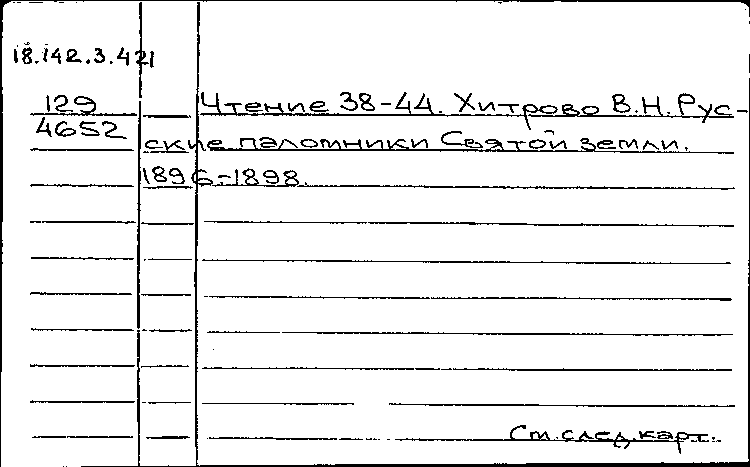 18.142.3.421
129 Чтение 38-44. Хитрово В.Н. Рус-
4652 ские паломники Святой земли.
1896-1898.
См. след. карт.